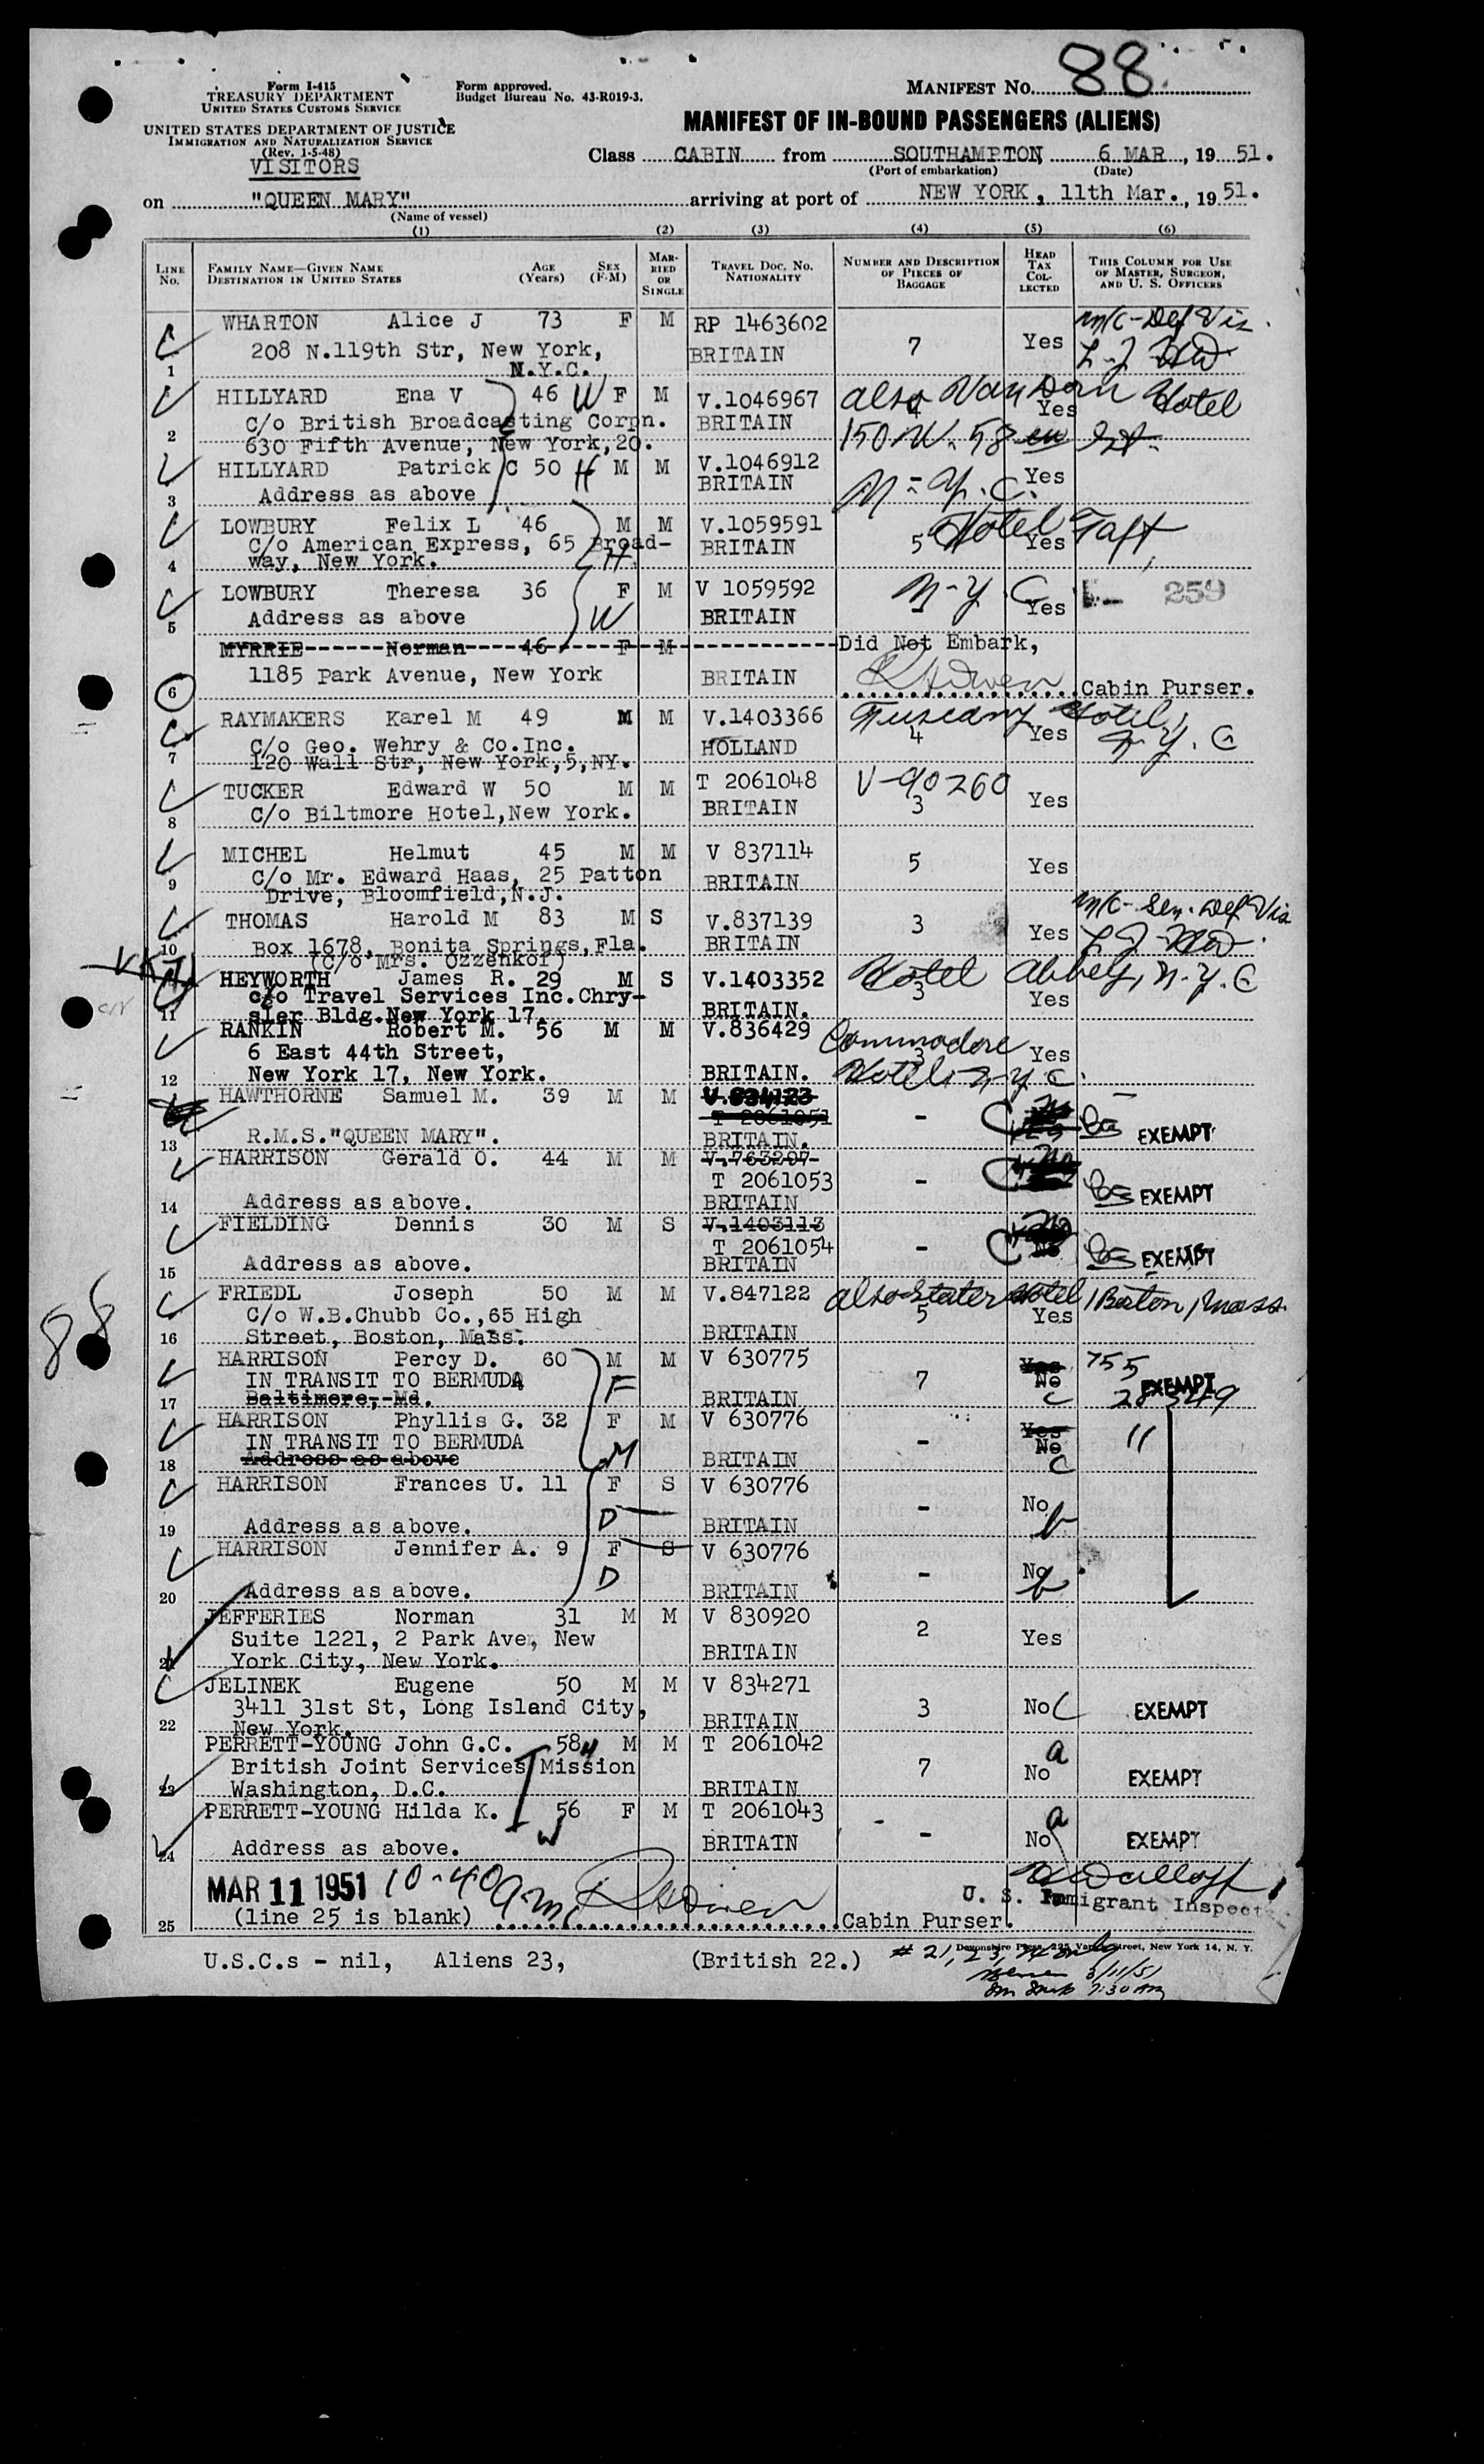 Form I-415
TREASURY DEPARTMENT
UNITED STATES CUSTOMS SERVICE
UNITED STATES DEPARTMENT OF JUSTICE
IMMIGRATION AND NATURALIZATION SERVICE
(Rev. 1-5-48)
VISITORS
Form approved.
Budget Bureau No. 43-R019-3.
MANIFEST NO. 88
MANIFEST OF IN-BOUND PASSENGERS (ALIENS)
Class CABIN from SOUTHAMPTON, 6 MAR, 19 51.
(Port of embarkation) (Date)
on "QUEEN MARY" arriving at port of NEW YORK, 11th Mar., 19 51.
(Name of vessel)
(1) (2) (3) (4) (5) (6)
LINE NO. FAMILY NAME—GIVEN NAME DESTINATION IN UNITED STATES AGE (Years) SEX (F-M) MARRIED OR SINGLE TRAVEL DOC. NO. NATIONALITY NUMBER AND DESCRIPTION OF PIECES OF BAGGAGE HEAD TAX COLLECTED THIS COLUMN FOR USE OF MASTER, SURGEON, AND U. S. OFFICERS
WHARTON Alice J 73 F M RP 1463602 m/c - Def Vis.
208 N.119th Str, New York, BRITAIN 7 Yes
1 N.Y.C.
HILLYARD Ena V 46 W F M V.1046967 also Van Dorn Hotel
C/o British Broadcasting Corpn. BRITAIN 4 Yes
2 630 Fifth Avenue, New York,20. 150 W. 58 St.
HILLYARD Patrick C 50 H M M V.1046912 - Yes
3 Address as above BRITAIN N.Y.C.
LOWBURY Felix L 46 M M V.1059591 Hotel Taft,
C/o American Express, 65 Broad- BRITAIN 5 Yes
4 way, New York. H
LOWBURY Theresa 36 F M V 1059592 N-Y C 259
5 Address as above W BRITAIN - Yes
MYRRIE Norman 46 F M Did Not Embark,
1185 Park Avenue, New York BRITAIN
6 Cabin Purser.
RAYMAKERS Karel M 49 M M V.1403366 Tuscany Hotel,
C/o Geo. Wehry & Co.Inc. HOLLAND 4 Yes N.Y.C
7 120 Wall Str, New York,5,NY.
TUCKER Edward W 50 M M T 2061048 V-90260
8 C/o Biltmore Hotel,New York. BRITAIN 3 Yes
MICHEL Helmut 45 M M V 837114 5 Yes
9 C/o Mr. Edward Haas, 25 Patton BRITAIN
Drive, Bloomfield,N.J.
THOMAS Harold M 83 M S V.837139 3 Yes m/c - Sen. Def Vis
10 Box 1678, Bonita Springs,Fla. BRITAIN
(C/o Mrs. Ozzenkof)
HEYWORTH James R. 29 M S V.1403352 Hotel Abbey, N.Y.C
c/o Travel Services Inc.Chry- 3 Yes
11 sler Bldg.New York 17. BRITAIN.
RANKIN Robert M. 56 M M V.836429 Commodore
6 East 44th Street, 3 Yes
12 New York 17, New York. BRITAIN. Hotel, N.Y.C.
HAWTHORNE Samuel M. 39 M M V.834123
T 2061051 -
13 R.M.S."QUEEN MARY". BRITAIN. EXEMPT
HARRISON Gerald O. 44 M M V.763297
T 2061053 -
14 Address as above. BRITAIN EXEMPT
FIELDING Dennis 30 M S V.1403113
T 2061054 - No
15 Address as above. BRITAIN EXEMPT
FRIEDL Joseph 50 M M V.847122 also Stater Hotel, Boston, Mass.
C/o W.B.Chubb Co.,65 High 5 Yes
16 Street, Boston, Mass. BRITAIN
88
HARRISON Percy D. 60 M M V 630775 Yes 755
IN TRANSIT TO BERMUDA F 7 No EXEMPT
17 Baltimore, Md. BRITAIN C 28349
HARRISON Phyllis G. 32 F M V 630776 Yes
IN TRANSIT TO BERMUDA - No 11
18 Address as above M BRITAIN C
HARRISON Frances U. 11 F S V 630776
- No
19 Address as above. D BRITAIN
HARRISON Jennifer A. 9 F S V 630776
- No
20 Address as above. D BRITAIN
JEFFERIES Norman 31 M M V 830920
Suite 1221, 2 Park Ave, New 2 Yes
21 York City, New York. BRITAIN
JELINEK Eugene 50 M M V 834271
3411 31st St, Long Island City, 3 No C EXEMPT
22 New York. BRITAIN
PERRETT-YOUNG John G.C. 58 H M M T 2061042 a
British Joint Services Mission 7 No EXEMPT
23 Washington, D.C. BRITAIN
PERRETT-YOUNG Hilda K. 56 F M T 2061043 a
24 Address as above. W BRITAIN - No EXEMPT
MAR 11 1951 10-40 a.m.
U. S. Immigrant Inspect
25 (line 25 is blank) Cabin Purser.
Devonshire Press, 225 Varick Street, New York 14, N. Y.
U.S.C.s - nil, Aliens 23, (British 22.) # 21, 23, 24 only
3/11/51
7:30 AM